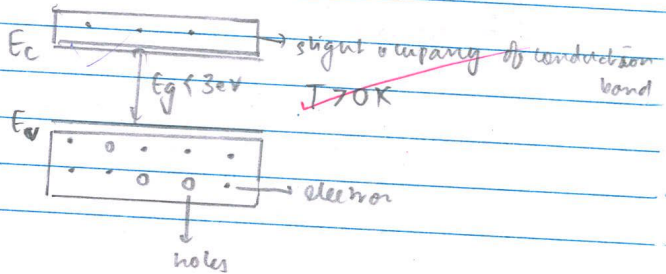 Ec
→ slight occupancy of conduction
band
Eg < 3eV
T > 0K
Ev
→ electron
holes